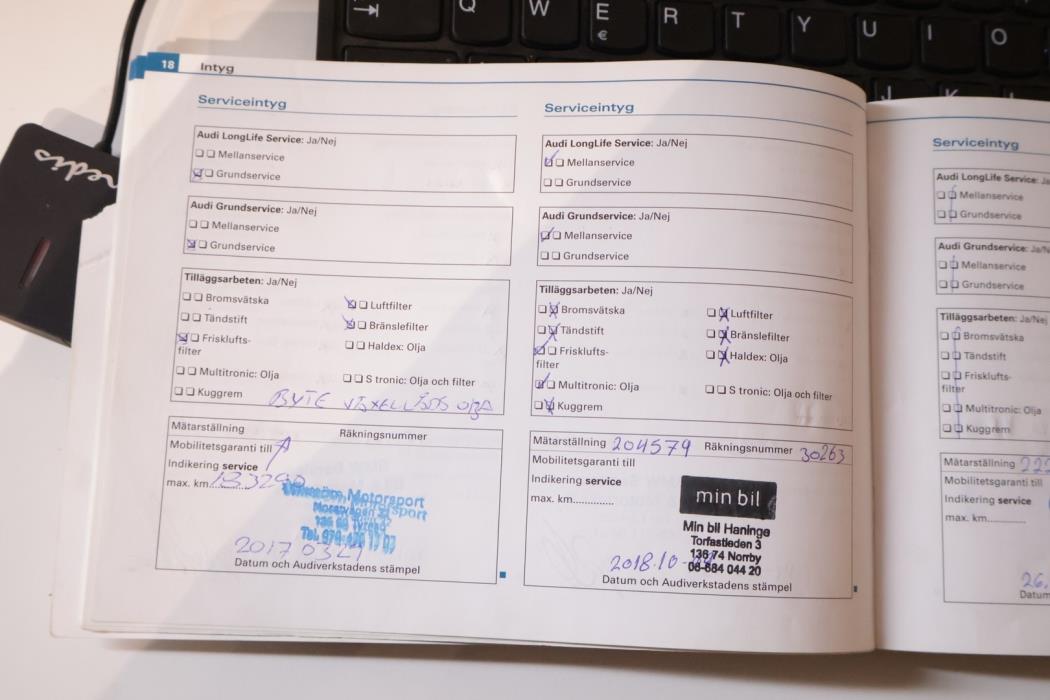 Q W E R T Y U I O
€
J K L
redis
18 Intyg
Serviceintyg
Audi LongLife Service: Ja/Nej
Mellanservice
Grundservice
Audi Grundservice: Ja/Nej
Mellanservice
Grundservice
Tilläggsarbeten: Ja/Nej
Bromsvätska Luftfilter
Tändstift Bränslefilter
Frisklufts- Haldex: Olja
filter
Multitronic: Olja S tronic: Olja och filter
Kuggrem BYTE VÄXELLÅDS OLJA
Mätarställning Räkningsnummer
Mobilitetsgaranti till
Indikering service
max. km 133290
Motorsport
2017 03
Datum och Audiverkstadens stämpel
Serviceintyg
Audi LongLife Service: Ja/Nej
Mellanservice
Grundservice
Audi Grundservice: Ja/Nej
Mellanservice
Grundservice
Tilläggsarbeten: Ja/Nej
Bromsvätska Luftfilter
Tändstift Bränslefilter
Frisklufts- Haldex: Olja
filter
Multitronic: Olja S tronic: Olja och filter
Kuggrem
Mätarställning 204579 Räkningsnummer 30263
Mobilitetsgaranti till
Indikering service
max. km.............
min bil
Min bil Haninge
Torfastleden 3
136 74 Norrby
08-684 044 20
2018.10
Datum och Audiverkstadens stämpel
Serviceintyg
Audi LongLife Service: Ja
Mellanservice
Grundservice
Audi Grundservice: Ja/N
Mellanservice
Grundservice
Tilläggsarbeten: Ja/Nej
Bromsvätska
Tändstift
Frisklufts-
filter
Multitronic: Olja
Kuggrem
Mätarställning 222
Mobilitetsgaranti till
Indikering service
max. km.............
26.
Datum